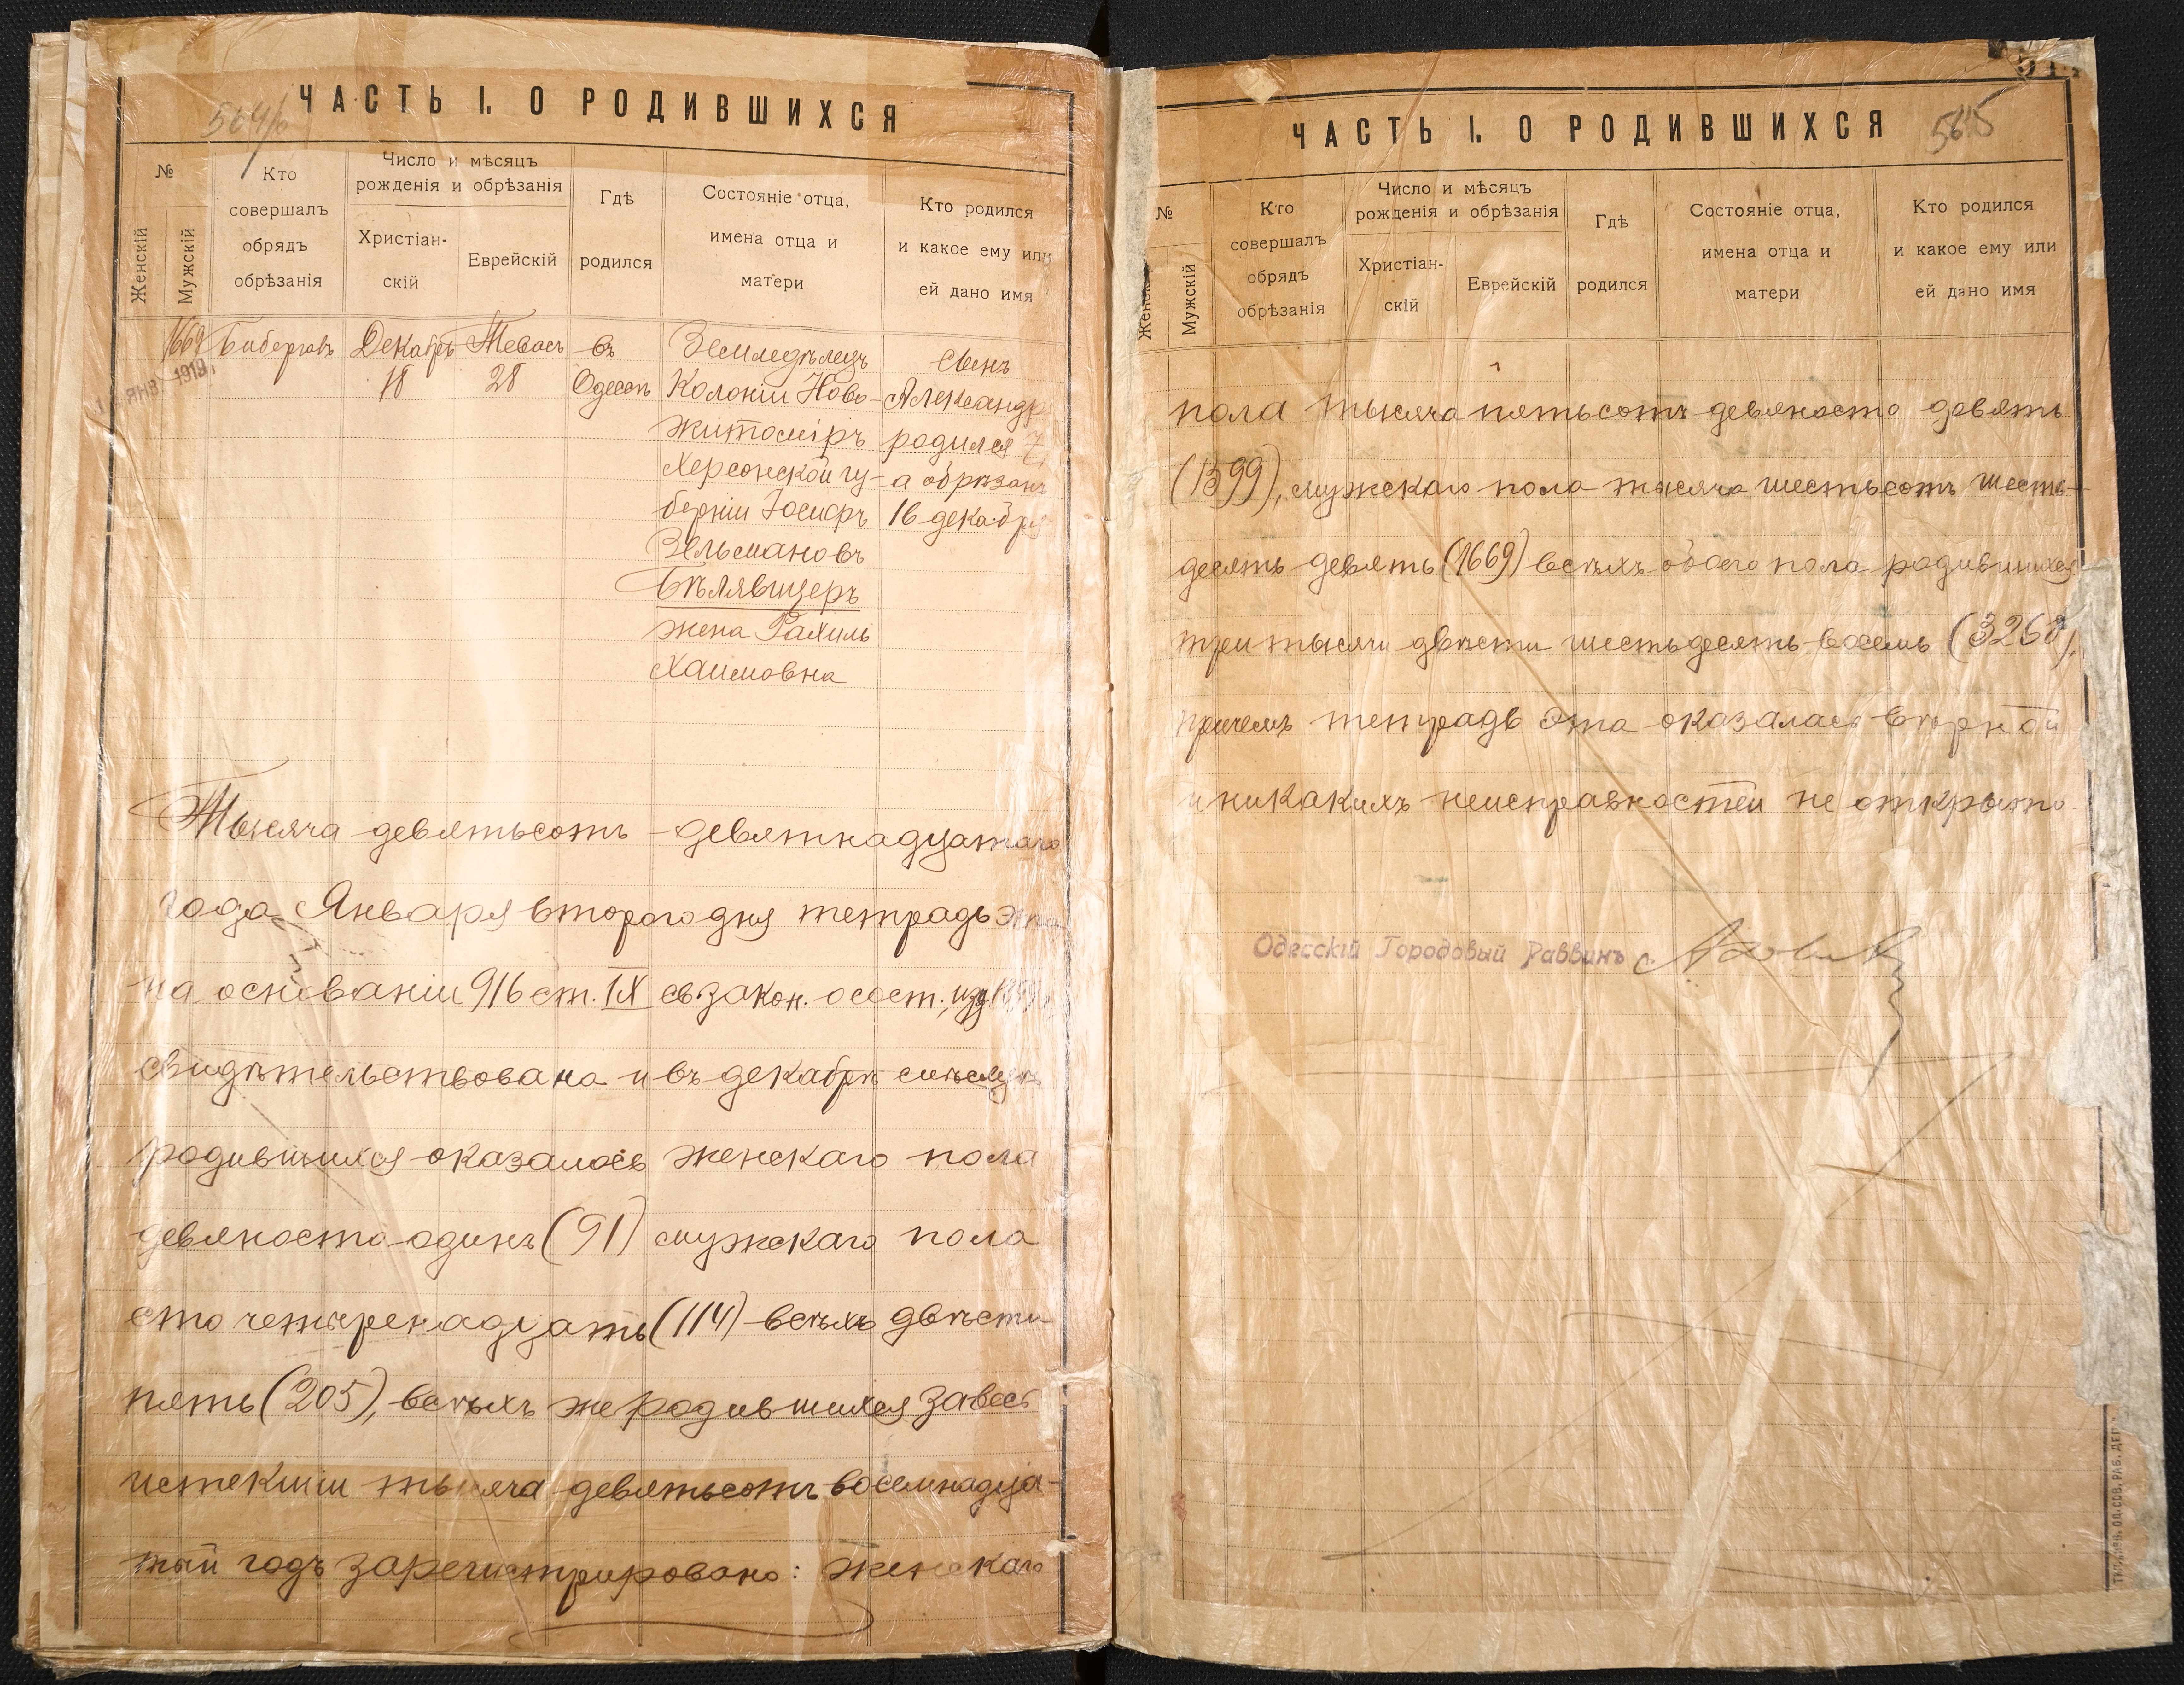 ЧАСТЬ I. О РОДИВШИХСЯ
№
Женскій
Мужскій
Кто совершалъ обрядъ обрѣзанія
Число и мѣсяцъ рожденія и обрѣзанія
Христіан-
скій
Еврейскій
Гдѣ родился
Состояніе отца, имена отца и матери
Кто родился и какое ему или ей дано имя
1669
Декабрь
18
Тевесъ
28
въ
Одессѣ
Земледѣлецъ
Колоніи Ново-
житоміръ
Херсонской гу-
берніи Іосифъ
Зельмановъ
жена Рахиль
Хаимовна
сынъ
Александръ
родился
а обрѣзанъ
16 декабря
ЯНВ. 1919
Тысяча девятьсотъ девятнадцатаго
года Января второго дня тетрадь эта
на основаніи 916 ст. IX св закон. о сост., изд
свидѣтельствована и въ декабрѣ мѣсяцѣ
родившихся оказалось женскаго пола
девяносто одинъ (91) мужскаго пола
сто четыренадцать (114) всѣхъ двѣсти
пять (205), всѣхъ же родившихся за весь
истекшій тысяча девятьсотъ восемнадца-
тый годъ зарегистрировано: женскаго
ЧАСТЬ I. О РОДИВШИХСЯ
5615
№
Женск
Мужскій
Кто совершалъ обрядъ обрѣзанія
Число и мѣсяцъ рожденія и обрѣзанія
Христіан-
скій
Еврейскій
Гдѣ родился
Состояніе отца, имена отца и матери
Кто родился и какое ему или ей дано имя
пола тысяча пятьсотъ девяносто девять
(1599), мужскаго пола тысяча шестьсотъ шесть-
десять девять (1669) всѣхъ обоего пола родившихся
три тысячи двѣсти шестьдесять восемь (3268),
причемъ тетрадь эта оказалась вѣрной
и никакихъ неисправностей не открыто.
Одесскій Городовый Раввинъ